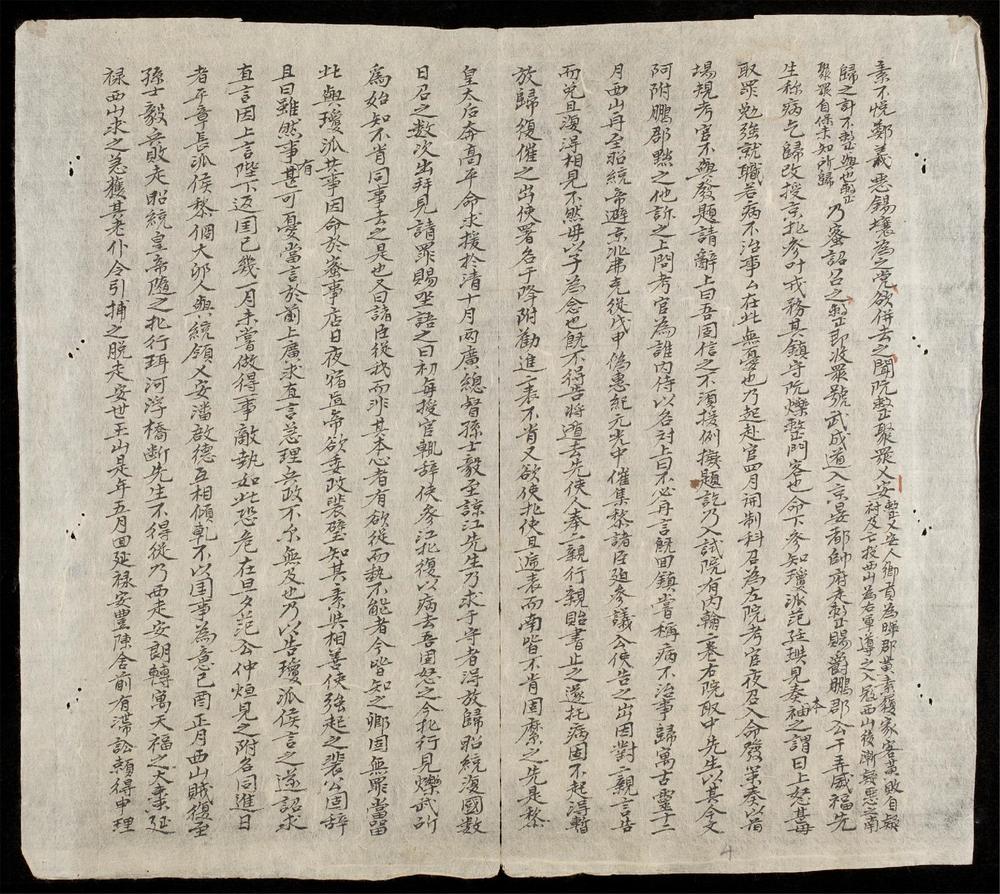 素不悅鄭義惡錫壤為黨欲併去之聞阮整聚眾乂安整乂安人鄉貢為曄郡黃素履家客黃敗自疑
討及亡投西山為右軍導之入寇西山後漸疑惡之南
歸之計不整與也整
聚眾自保未知所歸乃密詔召之整即收眾號武成道入京晏都帥府走整賜爵鵬郡公于弄威福先
生称病乞歸改授京北參叶戎務其鎮守阮爍整門客也命下參知瓊派范廷璵見奏本袖之謂曰上怒甚毋
取罪勉強就職若病不治事厶在此無憂也乃起赴官四月開制科召為左院考官夜召入命發策奏以首
場規考官不與發題請辭上曰吾固信之不須援例擬題訖乃入試院有內翰一卷右院取中先生以其今文
阿附鵬郡黜之他訴之上問考官為誰內侍以名对上曰不必再言既回鎮嘗稱病不治事歸寓古靈十二
月西山再至昭統帝避京北弗克從戊申偽惠紀元光中催集黎諸臣廹參議公使告之出因對二親言告
而死且復得相見不然毋以子為念也既不得告將遁去先使人奉二親行親貽書止之遂托病固不起得暫
放歸復催之出使署名于降附勸進一表不肯又欲使北使且遞表而南皆不肯固縻之先是黎
皇太后奔高平命求援於清十月兩廣總督孫士毅至諒江先生乃求于守者得放歸昭統復國数
日召之数次出拜見請罪賜坐語之曰初每授官輒辞使參江北復以病去吾固怒之今北行見爍武所
為始知不肯同事去之是也又曰諸臣從我而非其本心者有欲從而勢不能者今皆知之卿固無罪當留
此與瓊派共事因命於蜜事店日夜宿直帝欲委政裴璧知其素與相善使強起之裴公固辞
且曰雖然事有甚可憂當言於前上廣求直言急理兵政不尔無及也乃以告瓊派侯言之遂詔求
直言因上言陛下返国已幾一月未嘗做得事敵執如此恐危在旦夕范公仲烜見之附名同進日
者平章長派侯黎侗大卯人與統領乂安潘啟德互相傾軋不以国事為意己酉正月西山賊復至
孫士毅兵敗走昭統皇帝隨之北行珥河浮橋断先生不得從乃西走安朗轉寓天福之大棗延
禄西山求之急獲其老仆令引捕之脫走安世王山是年五月回延禄安豐陳舍前有滯訟頼得申理